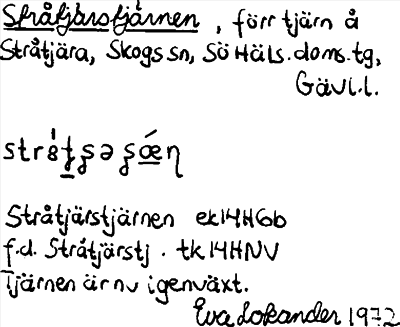 Stråtjärstjärnen, förr tjärn å
Stråtjära, Skogs sn, Sö Häls. doms. tg,
Gävl.l.
Stråtjärstjärnen ek14H6b
f.d. Stråtjärstj. tk14HNV
Tjärnen är nu igenväxt.
Eva Lokander 1972